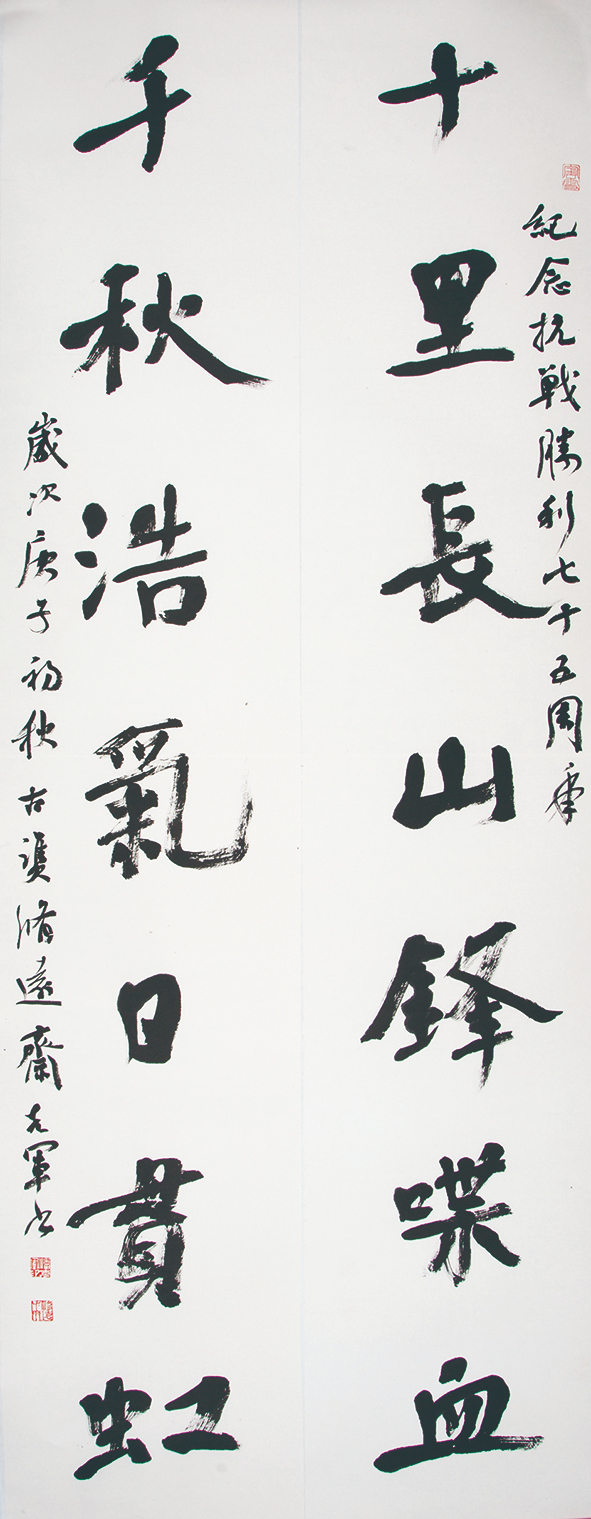 紀念抗戰勝利七十五周年
十里長山鋒喋血
千秋浩氣日貫虹
歲次庚子初秋古脩遠齋克軍书